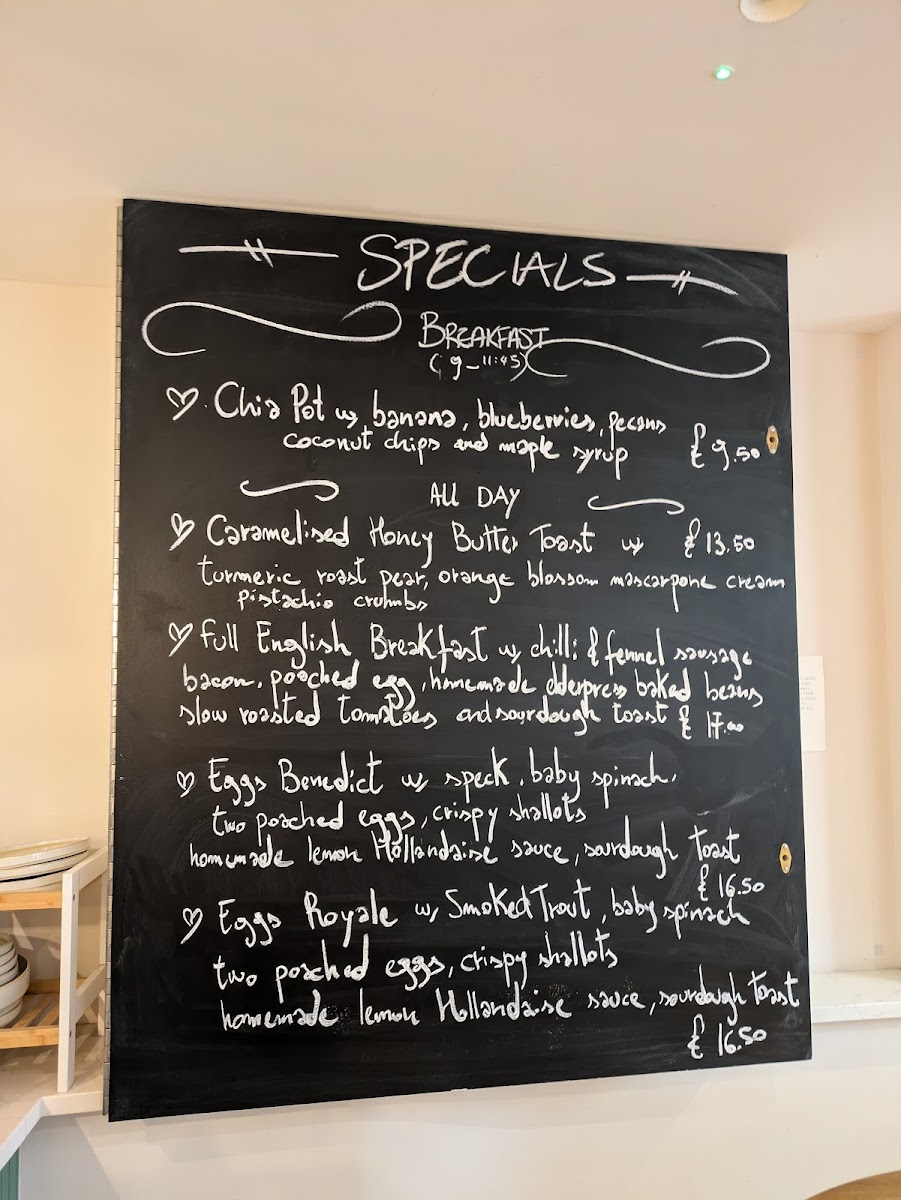 SPECIALS
BREAKFAST
(9-11:45)
Chia Pot w/ banana, blueberries, pecans
coconut chips and maple syrup £9.50
ALL DAY
Caramelised Honey Butter Toast w/ £13.50
turmeric roast pear, orange blossom mascarpone cream
pistachio crumbs
Full English Breakfast w/ chilli & fennel sausage
bacon, poached egg, homemade elderpress baked beans
slow roasted tomatoes and sourdough toast £17.00
Eggs Benedict w/ speck, baby spinach,
two poached eggs, crispy shallots
homemade lemon Hollandaise sauce, sourdough toast
£16.50
Eggs Royale w/ Smoked Trout, baby spinach
two poached eggs, crispy shallots
homemade lemon Hollandaise sauce, sourdough toast
£16.50